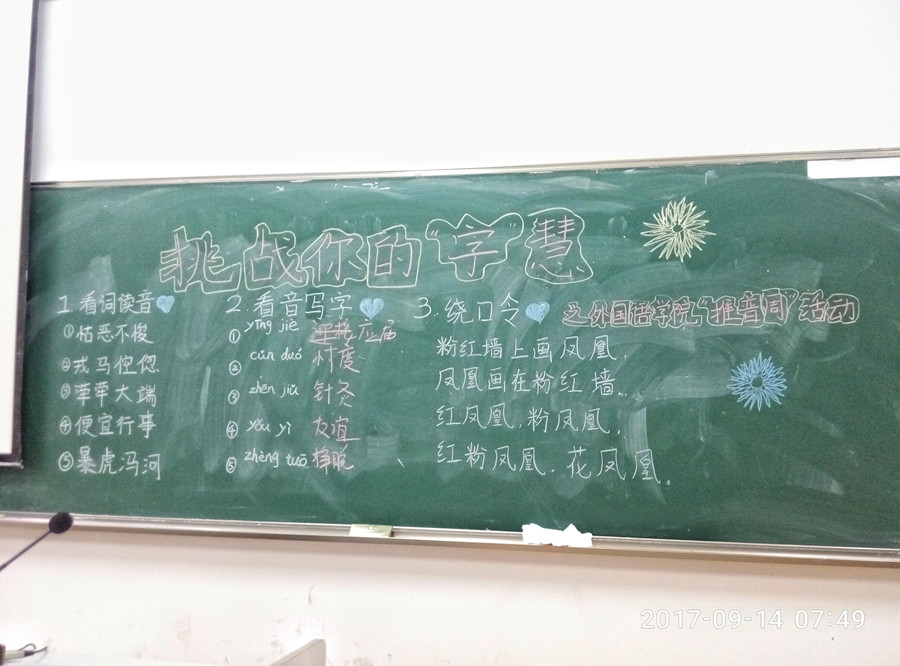 挑战你的“字”慧
之外国语学院“推普周”活动
1. 看词读音
①怙恶不悛
②戎马倥偬
③荦荦大端
④便宜行事
⑤暴虎冯河
2. 看音写字
① yīng jiē 迎接 应届
② cǔn duó 忖度
③ zhēn jiǔ 针灸
④ yǒu yì 友谊
⑤ zhèng tuō 挣脱
3. 绕口令
粉红墙上画凤凰，
凤凰画在粉红墙。
红凤凰，粉凤凰，
红粉凤凰．花凤凰。
2017-09-14 07:49